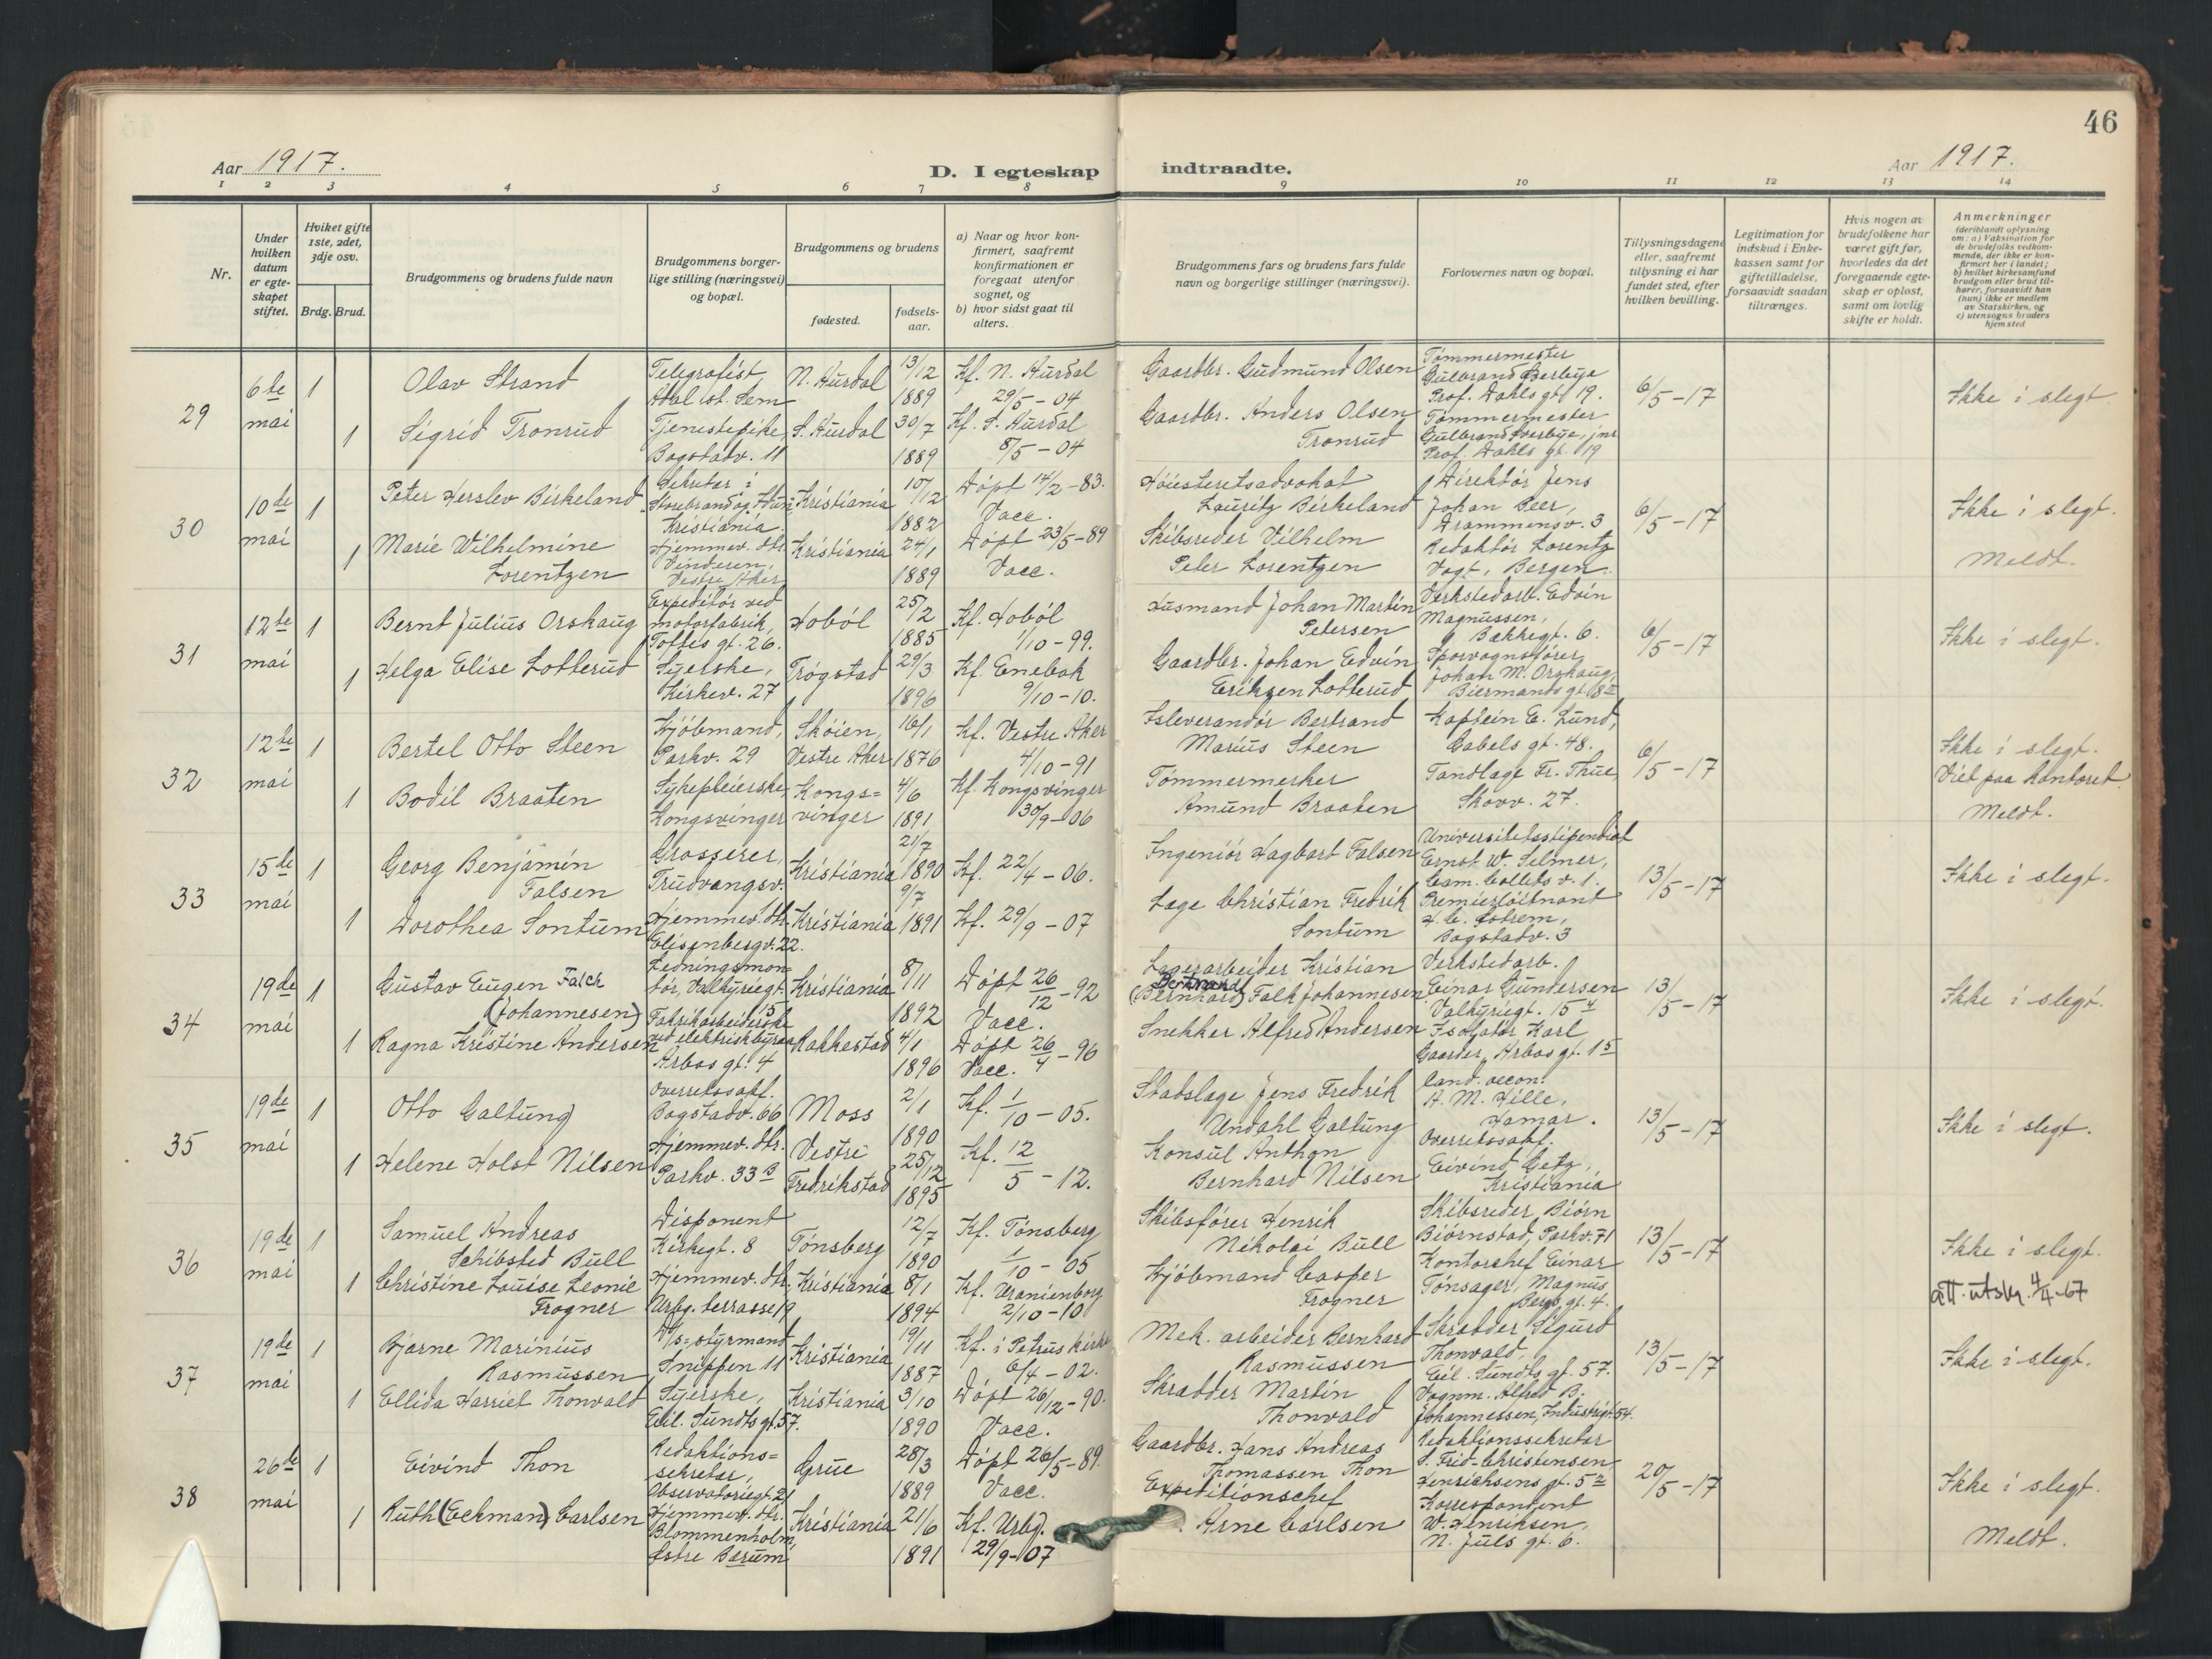 46
Aar 1917.
D. I egteskap indtraadte.
Aar 1917.
1 2 3 4 5 6 7 8 9 10 11 12 13 14
Nr.
Under hvilken datum er egteskapet stiftet.
Hviket gifte 1ste, 2det, 3dje osv.
Brdg. Brud.
Brudgommens og brudens fulde navn
Brudgommens borgerlige stilling (næringsvei) og bopæl.
Brudgommens og brudens
fødested.
fødselsaar.
a) Naar og hvor konfirmert, saafremt konfirmationen er foregaat utenfor sognet, og
b) hvor sidst gaat til alters.
Brudgommens fars og brudens fars fulde navn og borgerlige stillinger (næringsvei).
Forlovernes navn og bopæl.
Tillysningsdagene eller, saafremt tillysning ei har fundet sted, efter hvilken bevilling.
Legitimation for indskud i Enkekassen samt for giftetilladelse, forsaavidt saadan tiltrænges.
Hvis nogen av brudefolkene har været gift før, hvorledes da det foregaaende egteskap er opløst, samt om lovlig skifte er holdt.
Anmerkninger (deriblandt oplysning om: a) Vaksination for de brudefolks vedkommende, der ikke er konfirmert her i landet; b) hvilket kirkesamfund brudgom eller brud tilhører, forsaavidt han (hun) ikke er medlem av Statskirken, og c) utensogns bruders hjemsted
29 6te mai 1 Olav Strand Telegrafist, Adal st. Sem N. Hurdal 13/12 1889 Kf. N. Hurdal 29/5-04 Gaardbr. Gudmund Olsen Tømmermester Gulbrand Berbye Prof. Dahls gt. 19. 6/5-17 Ikke i slegt.
1 Sigrid Tronrud Tjenestepike, Bogstadv. 11 S. Hurdal 30/7 1889 Kf. S. Hurdal 8/5-04 Gaardbr. Anders Olsen Tronrud Tømmermester Gulbrand jnr. Prof. Dahls gt. 19
30 10de mai 1 Peter Herslev Birkeland Sekretær i Storebrand og Idun Kristiania. Kristiania 10/12 1882 Døpt 14/2-83. Vacc. Høiesteretsadvokat Lauritz Birkeland Direktør Jens Johan Seer, Drammensv. 3 6/5-17 Ikke i slegt.
1 Marie Vilhelmine Lorentzen Hjemmev. dtr. Vinderen, Vestre Aker Kristiania 24/1 1889 Døpt 23/5-89 Vacc. Skibsreder Vilhelm Peter Lorentzen Redaktør Lorentz Vogt, Bergen. Meldt.
31 12te mai 1 Bernt Julius Orskaug Expeditør ved motorfabrik, Toftes gt. 26. Hobøl 25/2 1885 Kf. Hobøl 1/10-99. Husmand Johan Martin Petersen Verkstedarb. Edvin Magnussen, Bakkegt. 6. 6/5-17 Ikke i slegt.
1 Helga Elise Lotterud Syerske, Kirkev. 27 Trøgstad 29/3 1896 Kf. Enebak 9/10-10. Gaardbr. Johan Edvin Eriksen Lotterud Sporvognsfører Johan M. Orskaug, Biermanns gt. 8
32 12te mai 1 Bertel Otto Steen Kjøbmand, Parkv. 29 Skøien, Vestre Aker 16/1 1876 Kf. Vestre Aker 4/10-91 Isleverandør Bertrand Marius Steen Kaptein E. Lund, Gabels gt. 48. 6/5-17 Ikke i slegt. Viet paa kontoret.
1 Bodil Braaten Sykepleierske, Kongsvinger Kongs=vinger 4/6 1891 Kf. Kongsvinger 30/9-06 Tømmermerker Amund Braaten Tandlæge Fr. Thue, Skovv. 27. Meldt.
33 15de mai 1 Georg Benjamin Falsen Grosserer, Trudvangsv. Kristiania 21/7 1890 Kf. 22/4-06. Ingeniør Hagbart Falsen Universitetsstipendiat Ernst W. Selmer, Cam. Colletts v. 1. 13/5-17 Ikke i slegt.
1 Dorothea Sontum Hjemmev. dtr. Elisenbergv. 22. Kristiania 9/7 1891 Kf. 29/9-07 Læge Christian Fredrik Sontum Premierløitnant Bogstadv. 3
34 19de mai 1 Gustav Eugen Falck (Johannesen) Ledningsmon=tør, Valkyriegt. 15 Kristiania 8/11 1892 Døpt 26/12-92 Vacc. Lagerarbeider Kristian Bertrand (Bernhard) Falk Johannesen Verkstedarb. Einar Gundersen Valkyriegt. 15 13/5-17 Ikke i slegt.
1 Ragna Kristine Andersen Fabrikarbeiderske ved elektrisk byraa Arbos gt. 4 Rakkestad 4/1 1896 Døpt 26/4-96 Vacc. Snekker Alfred Andersen Isolatør Karl Gaarder, Arbos gt. 15
35 19de mai 1 Otto Galtung Overretssakf. Bogstadv. 66 Moss 2/1 1890 Kf. 1/10-05. Stadslæge Jens Fredrik Undahl Galtung Cand. oecon. A. M. Hille, Hamar. 13/5-17 Ikke i slegt.
1 Helene Holst Nilsen Hjemmev. dtr. Parkv. 33 B Vestre Fredrikstad 25/12 1895 Kf. 12/5-12. Konsul Anthon Bernhard Nilsen Overretssakf. Eivind Getz, Kristiania
36 19de mai 1 Samuel Andreas Schibsted Bull Disponent Kirkegt. 8 Tønsberg 12/7 1890 Kf. Tønsberg 1/10-05 Skibsfører Henrik Nikolai Bull Skibsreder Biørn Biørnstad, Parkv. 71 13/5-17 Ikke i slegt.
1 Christine Louise Leonie Frogner Hjemmev. dtr. Urbg. terrasse 19 Kristiania 8/1 1894 Kf. Uranienborg 2/10-10 Kjøbmand Casper Frogner Kontorchef Einar Tønsager, Magnus Bergs gt. 4. att. utskr. 4/4-67
37 19de mai 1 Bjarne Marinius Rasmussen D/s=styrmand Snippen 11 Kristiania 19/11 1887 Kf. i Petrus kirke 6/4-02. Mek. arbeider Bernhard Rasmussen Skrædder Sigurd Thonvald, Eil. Sundts gt. 57. 13/5-17 Ikke i slegt.
1 Ellida Harriet Thonvald Syerske, Eil. Sundts gt. 57. Kristiania 3/10 1890 Døpt 26/12-90. Vacc. Skrædder Martin Thonvald Vognm. Alfred B. Johannessen, Industrigt. 54.
38 26de mai 1 Eivind Thon Redaktions=sekretær, Observatoriegt. 21 Grue 28/3 1889 Døpt 26/5-89. Vacc. Gaardbr. Hans Andreas Thomassen Thon Redaktionssekretær S. Frid-Christensen Henrichsens gt. 5 20/5-17 Ikke i slegt.
1 Ruth (Eckman) Carlsen Hjemmev. dtr. Blommenholm, Østre Bærum Kristiania 21/6 1891 Kf. Urbg. 29/9-07 Expeditionschef Arne Carlsen Korrespondent W. Henriksen, N. Juls gt. 6. Meldt.